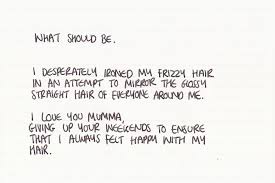 WHAT SHOULD BE.
I DESPERATELY IRONED MY FRIZZY HAIR
IN AN ATTEMPT TO MIRROR THE GLOSSY
STRAIGHT HAIR OF EVERYONE AROUND ME.
I LOVE YOU MUMMA,
GIVING UP YOUR WEEKENDS TO ENSURE
THAT I ALWAYS FELT HAPPY WITH MY
HAIR.